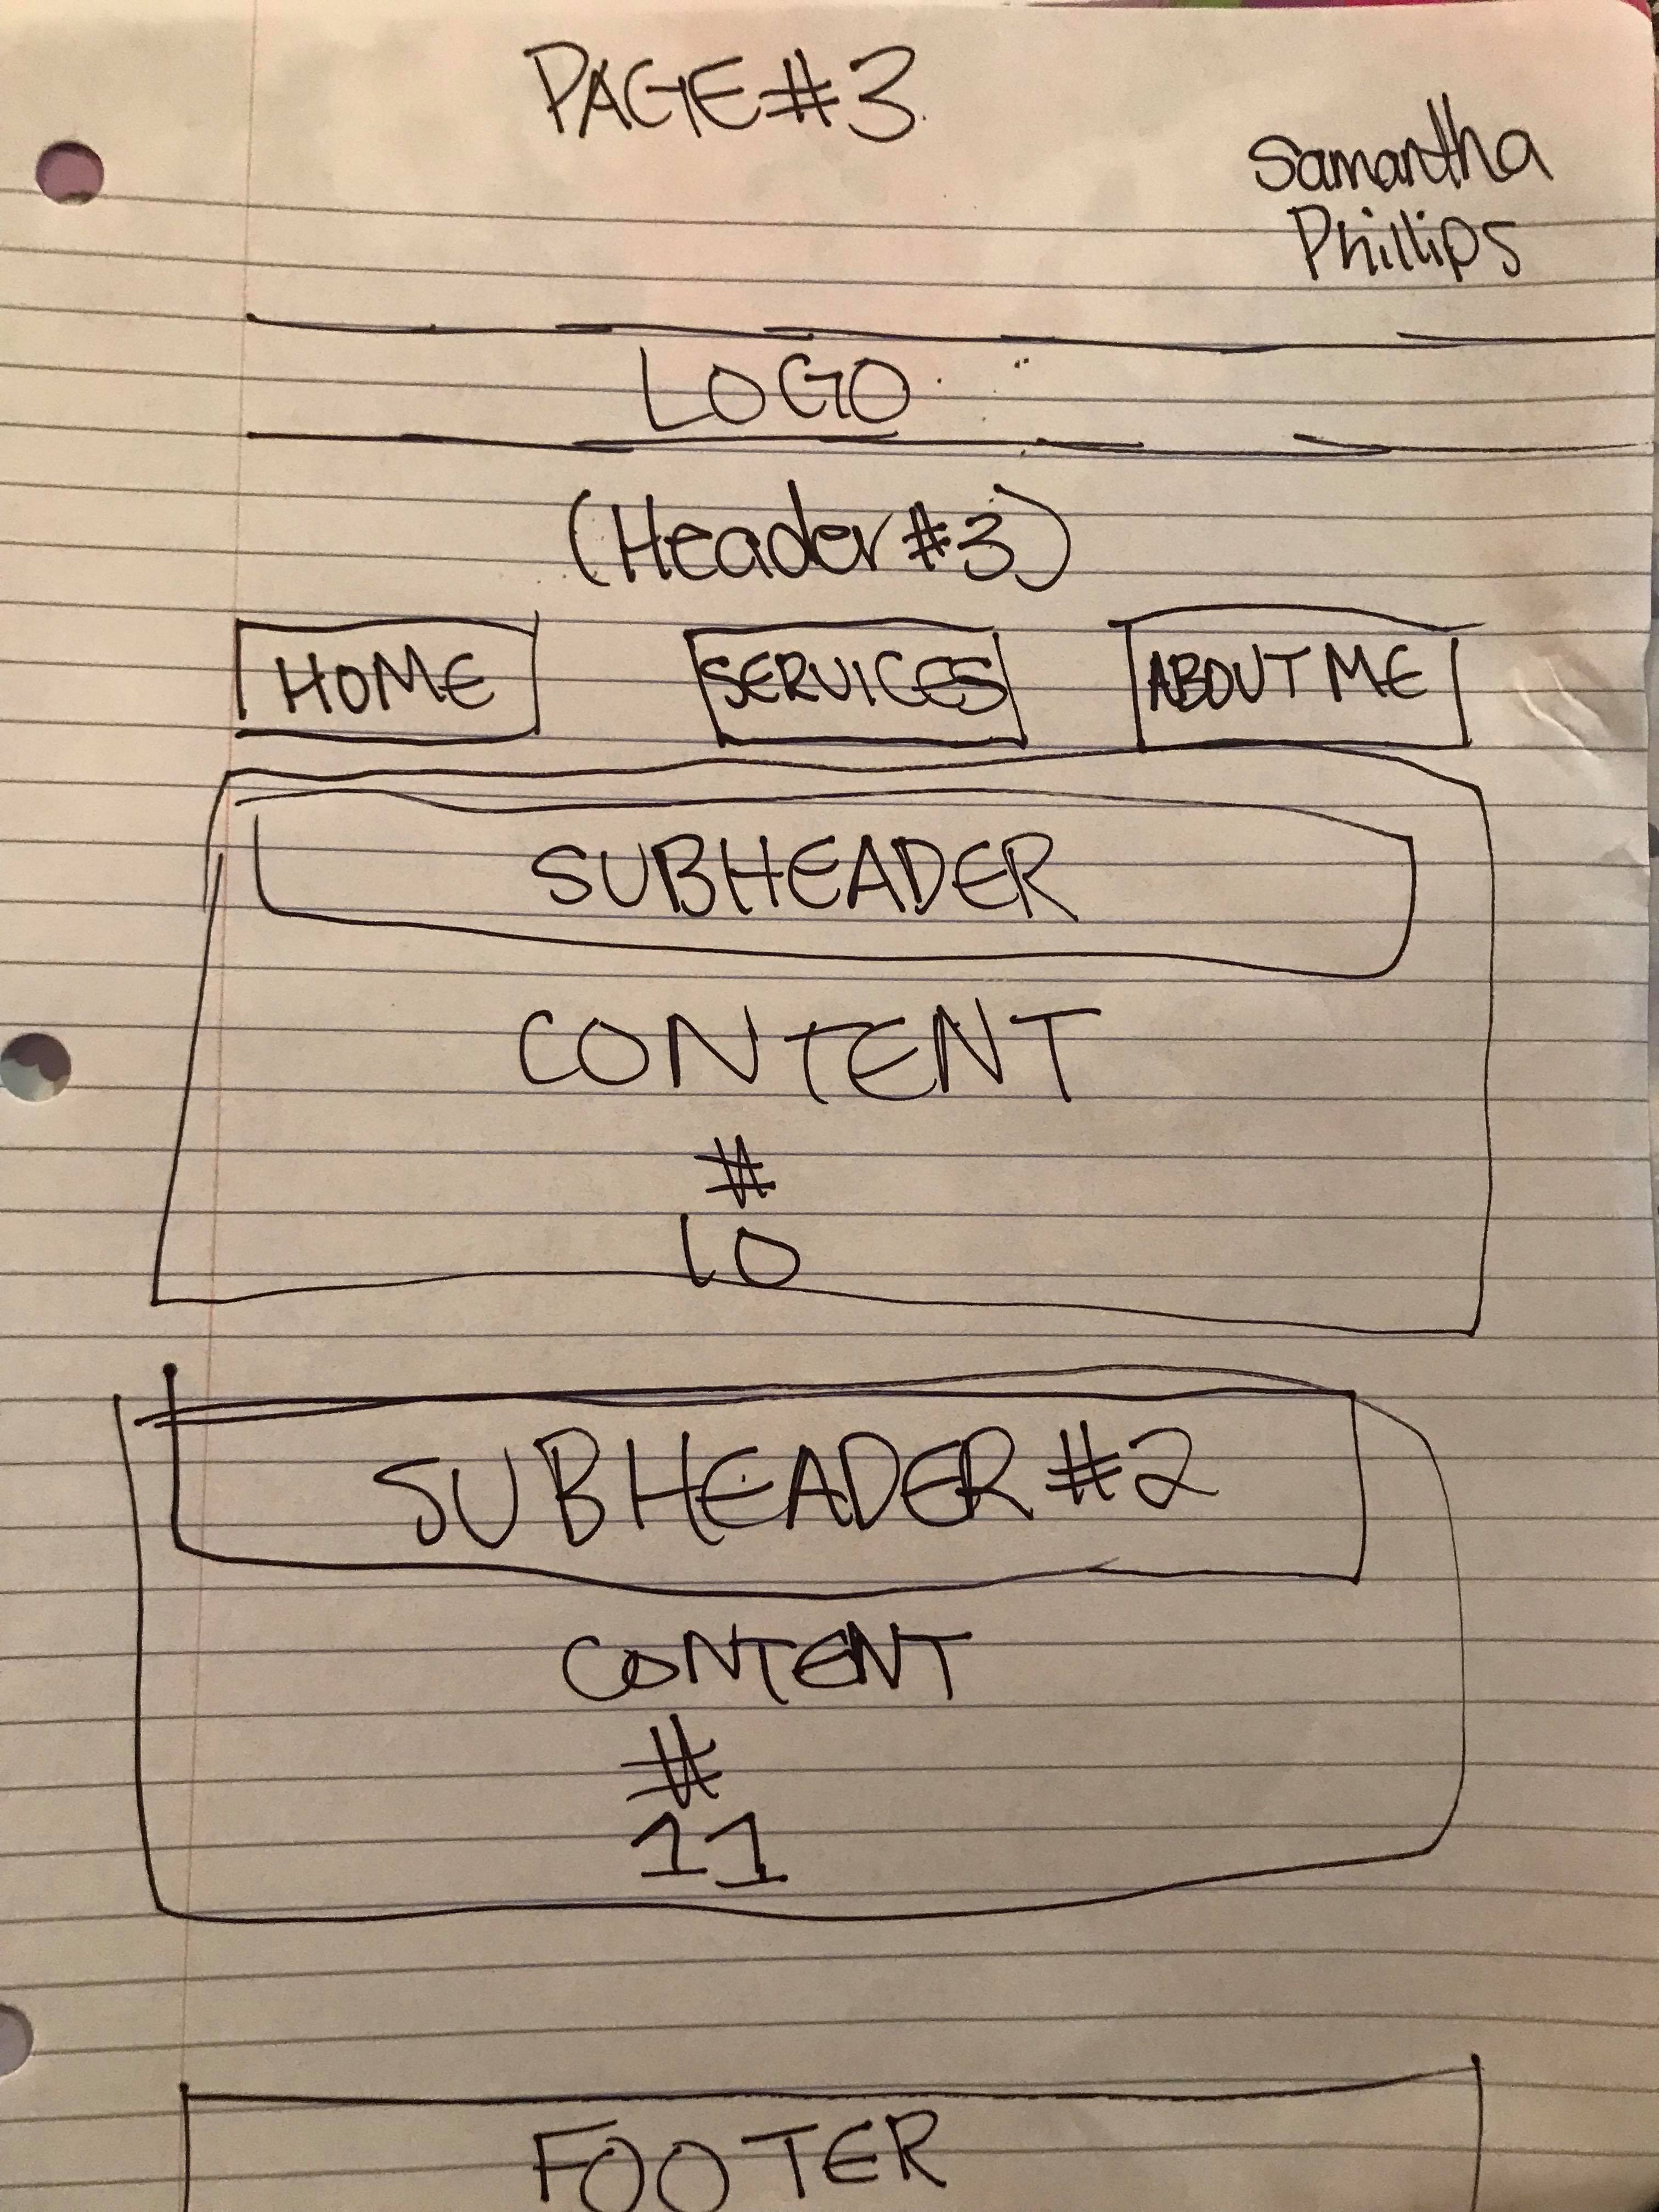 PAGE#3
Samantha
Phillips
LOGO
(Header#3)
HOME SERVICES ABOUT ME
SUBHEADER
CONTENT
#
10
SUBHEADER #2
CONTENT
#
11
FOOTER